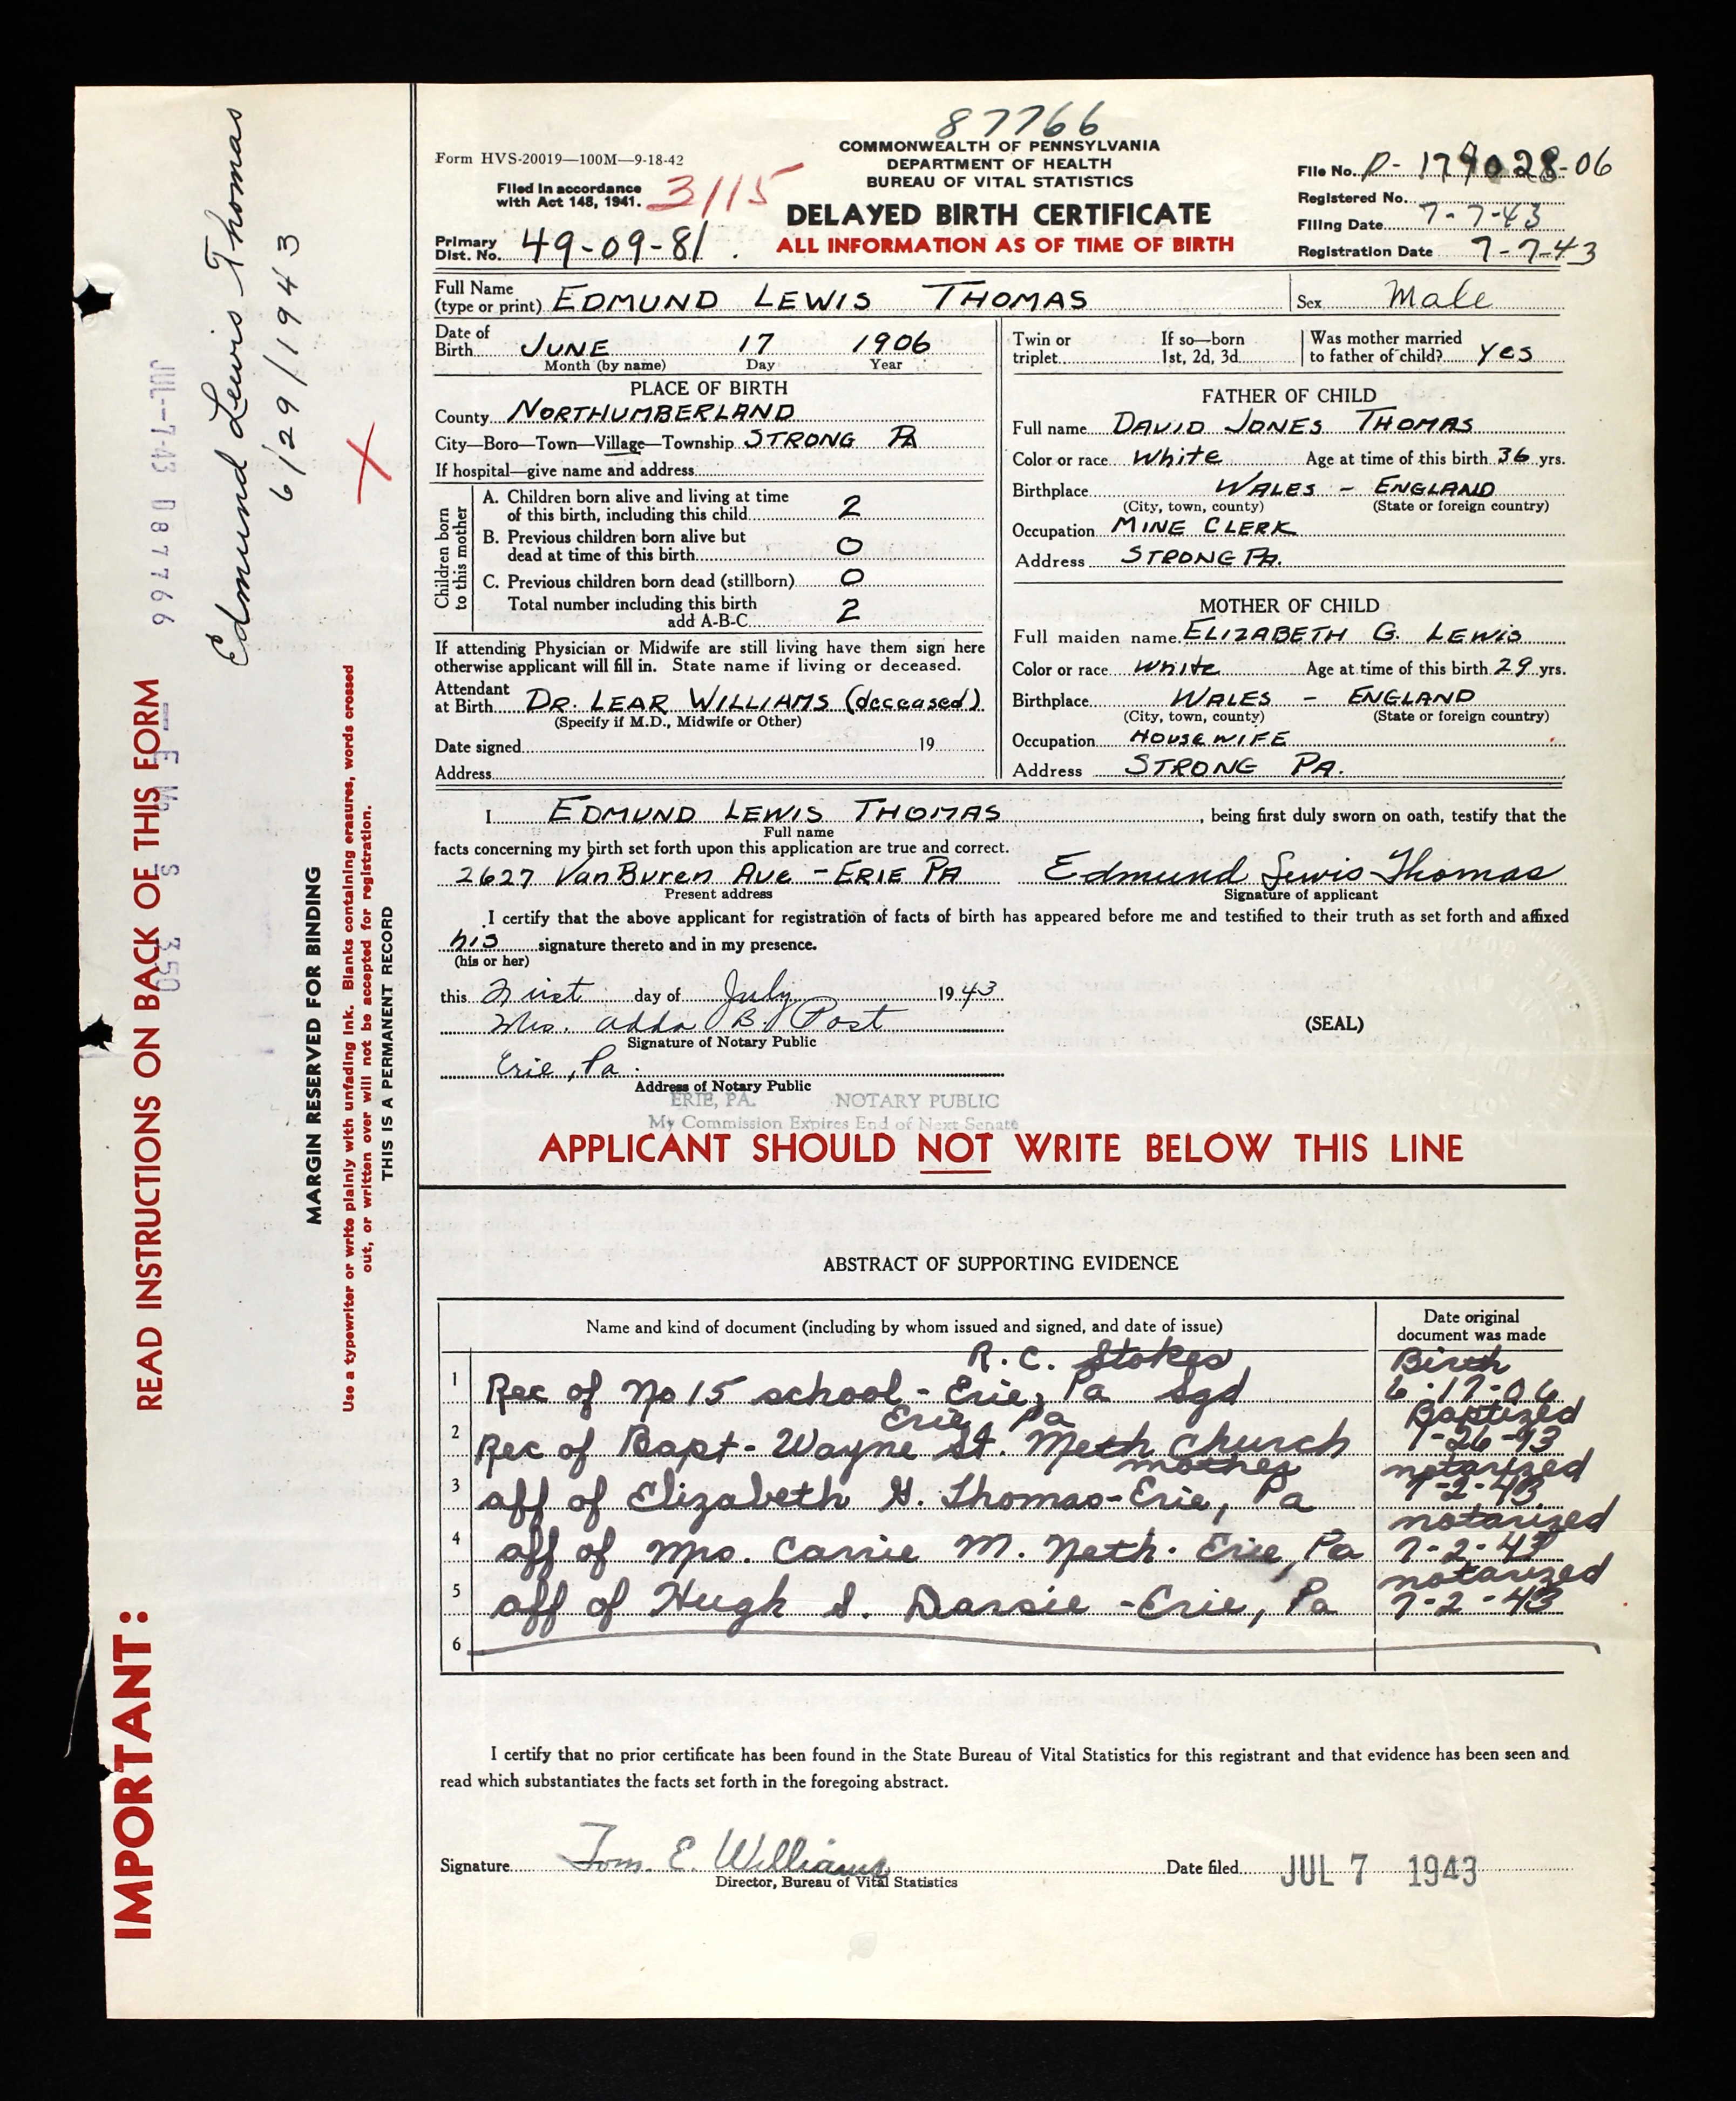 87766
COMMONWEALTH OF PENNSYLVANIA
DEPARTMENT OF HEALTH
BUREAU OF VITAL STATISTICS
DELAYED BIRTH CERTIFICATE
ALL INFORMATION AS OF TIME OF BIRTH
Form HVS-20019—100M—9-18-42
Filed in accordance
with Act 148, 1941. 3115
Primary
Dist. No. 49-09-81
File No. D- 179028-06
Registered No.
Filing Date 7-7-43
Registration Date 7-7-43
Full Name
(type or print) EDMUND LEWIS THOMAS Sex Male
Date of
Birth JUNE 17 1906
Month (by name) Day Year
Twin or triplet If so—born 1st, 2d, 3d
Was mother married
to father of child? yes
PLACE OF BIRTH
County NORTHUMBERLAND
City—Boro—Town—Village—Township STRONG PA
If hospital—give name and address
Children born to this mother
A. Children born alive and living at time
of this birth, including this child 2
B. Previous children born alive but
dead at time of this birth 0
C. Previous children born dead (stillborn) 0
Total number including this birth
add A-B-C 2
If attending Physician or Midwife are still living have them sign here
otherwise applicant will fill in. State name if living or deceased.
Attendant
at Birth DR. LEAR WILLIAMS (deceased)
(Specify if M.D., Midwife or Other)
Date signed 19
Address
FATHER OF CHILD
Full name DAVID JONES THOMAS
Color or race White Age at time of this birth 36 yrs.
Birthplace WALES - ENGLAND
(City, town, county) (State or foreign country)
Occupation MINE CLERK
Address STRONG PA.
MOTHER OF CHILD
Full maiden name ELIZABETH G. LEWIS
Color or race White Age at time of this birth 29 yrs.
Birthplace WALES - ENGLAND
(City, town, county) (State or foreign country)
Occupation HOUSEWIFE
Address STRONG PA.
I EDMUND LEWIS THOMAS, being first duly sworn on oath, testify that the
Full name
facts concerning my birth set forth upon this application are true and correct.
2627 VanBuren Ave - ERIE PA Edmund Lewis Thomas
Present address Signature of applicant
I certify that the above applicant for registration of facts of birth has appeared before me and testified to their truth as set forth and affixed
his signature thereto and in my presence.
(his or her)
this First day of July 1943
Mrs. Adda B. Post
Signature of Notary Public
(SEAL)
Erie, Pa.
Address of Notary Public
ERIE, PA. NOTARY PUBLIC
My Commission Expires End of Next Senate
APPLICANT SHOULD NOT WRITE BELOW THIS LINE
ABSTRACT OF SUPPORTING EVIDENCE
Name and kind of document (including by whom issued and signed, and date of issue)
Date original
document was made
R. C. Stokes Birth
1 Rec of No 15 school - Erie, Pa Sgd 6-17-06
Erie, Pa Baptized
2 Rec of Bapt- Wayne St. Meth Church
mother notarized
3 aff of Elizabeth G. Thomas-Erie, Pa 7-2-43
notarized
4 aff of Mrs. Carrie M. Neth. Erie, Pa 7-2-43
notarized
5 aff of Hugh S. Darsie - Erie, Pa 7-2-43
6
I certify that no prior certificate has been found in the State Bureau of Vital Statistics for this registrant and that evidence has been seen and
read which substantiates the facts set forth in the foregoing abstract.
Signature Tom. E. Williams Date filed JUL 7 1943
Director, Bureau of Vital Statistics
IMPORTANT: READ INSTRUCTIONS ON BACK OF THIS FORM
JUL--7-43 087766
Edmund Lewis Thomas
6/29/1943
MARGIN RESERVED FOR BINDING
Use a typewriter or write plainly with unfading ink. Blanks containing erasures, words crossed
out, or written over will not be accepted for registration.
THIS IS A PERMANENT RECORD